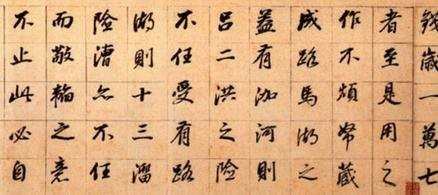 錢歲一萬七
者至是用之
作不煩帑藏
成路馬湖之
益有泇河則
呂二洪之險
不任受有路
湖則十三溜
險漕亦不任
而敬輸之意
不止此必自